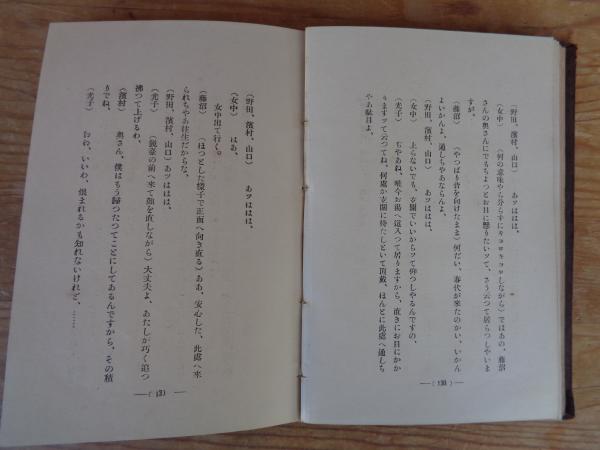 (野田、濱村、山口)　あツははは。
(女中)　(何の意味やら分らずにキョロキョロしながら)ではあの、藤沼
さんの奥さんにでもちょっとお目に懸りたいッて、さう云つて居らつしやいま
すが。
(藤沼)　(やつぱり背を向けたまま)何だい、春代が来たのかい、いかん
よいかんよ、通しちやあならんよ。
(野田、濱村、山口)　あツははは。
(女中)　上らないでも、玄關でいいからツて仰つしやるんですの。
(光子)　ぢやあね、唯今お湯へ這入つて居りますから、直きにお目にかか
りますッて云つてね、何處か玄關に待たしといて頂戴、ほんとに此處へ通しち
やあ駄目よ。
—( 130 )—
(女中)　はあ。
女中出て行く。
(藤沼)　(ほつとした様子で正面へ向き直る)ああ、安心した、此處へ來
られちやあ往生だからな。
(野田、濱村、山口)　あツははは、
(光子)　(鏡臺の前へ来て顔を直しながら)大丈夫よ、あたしが巧く追つ
拂つて上げるわ。
(濱村)　奥さん、僕はもう歸つたつてことにしてあるんですから、その積
りでね。
(光子)　ええ、いいわ、恨まれるかも知れないけれど。……
—( 131 )—